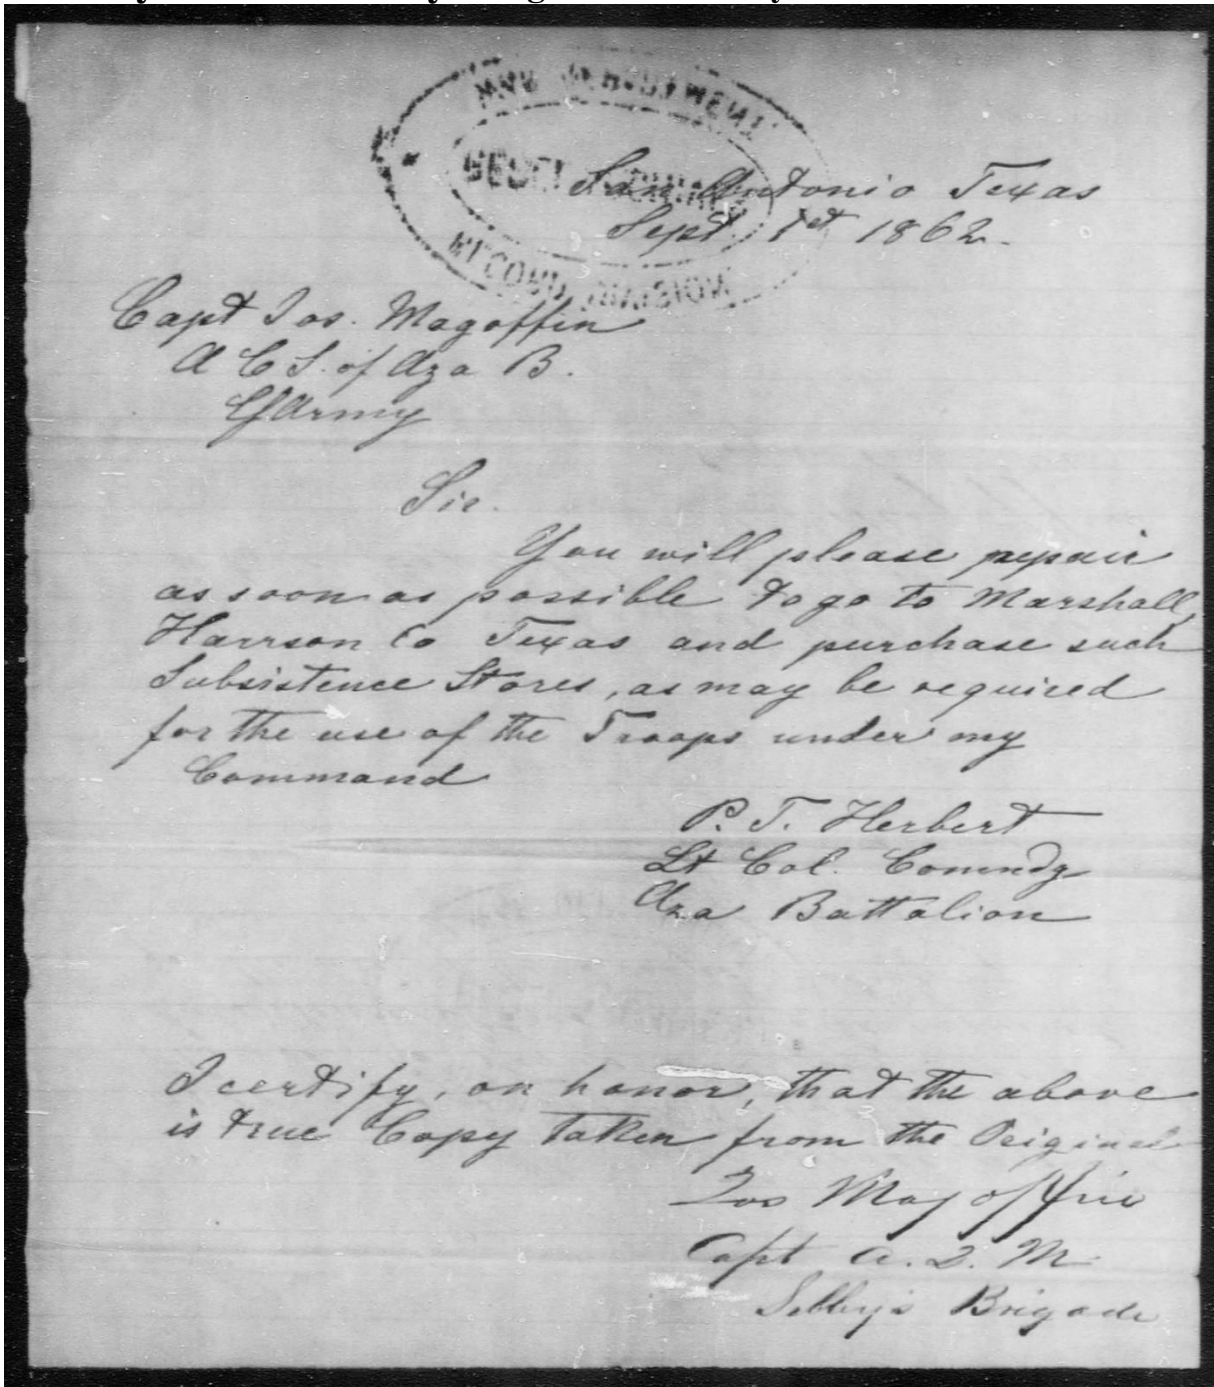 San Antonio Texas
Sept. 1st 1862.
Capt Jos. Magoffin
A C S. of Aza B.
CSArmy
Sir.
You will please repair
as soon as possible to go to Marshall,
Harrson Co Texas and purchase such
Subsistence Stores, as may be required
for the use of the Troops under my
Command
P. T. Herbert
Lt Col. Commdg
Aza Battalion
I certify, on honor, that the above
is true Copy taken from the Original
Jos Magoffin
Capt A. Q. M
Sibley's Brigade